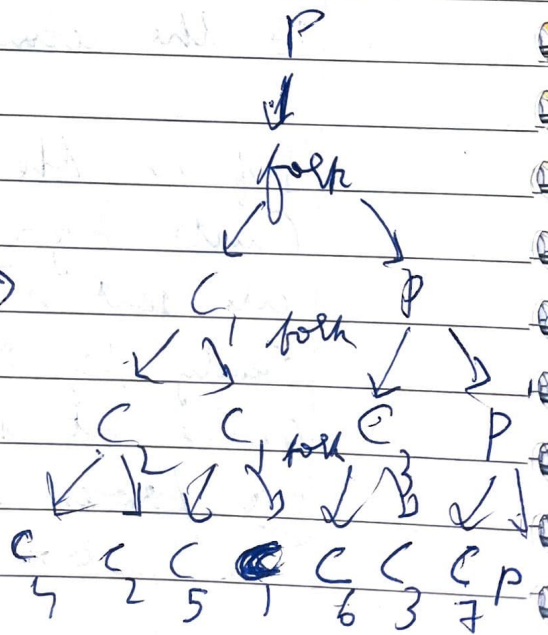 P
fork
C1 P
fork
C2 C1 C3 P
fork
C4 C2 C5 C1 C6 C3 C7 P